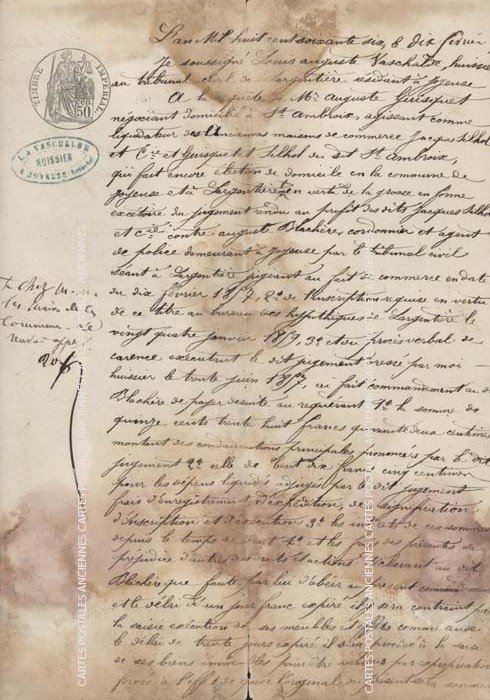 TIMBRE IMPÉRIAL
50
L. A. VASCHALDE
HUISSIER
A JOYEUSE
L'an Mil huit cent soixante six, le dix février
Je soussigné Louis auguste Vaschalde, huissier
au tribunal civil de Largentière résidant à Joyeuse
A la requête de Mr. Auguste Guisquet
négociant domicilié à St Ambroix, agissant comme
liquidateur des anciennes maisons de commerce Jacques Silhol
et Cie et Guisquet et Silhol du dit St Ambroix,
qui fait encore élection de domicile en la commune de
Joyeuse et à Largentière en vertu de la grosse en forme
exécutoire du jugement rendu au profit des dits Jacques Silhol
et Cie contre auguste Blachère, cordonnier et agent
de police demeurant à Joyeuse par le tribunal civil
séant à Largentière jugeant au fait de commerce en date
du dix février 1857, 2o de l'inscription requise en vertu
de ce titre au bureau des hypothèques de Largentière le
vingt quatre janvier 3o et du procès verbal de
carence exécutant le dit jugement dressé par moi
huissier le trente juin 1857, ai fait commandement au dit
Blachère de payer de suite au requérant 1o la somme de
quinze cents trente huit francs quarante deux centimes
montant des condamnations principales prononcées par le dit
jugement 2o celle de cent dix francs cinq centimes
pour les dépens liquidés adjugés par le dit jugement
frais d'enregistrement d'expédition, de signification
d'inscription et d'exécution 3o les intérêts de ces sommes
depuis le temps de droit 4o et les frais des présentes sans
préjudice d'autres droits et actions déclarant au dit
Blachère que faute par lui d'obéir au présent commandement
et le délai d'un jour franc expiré il y sera contraint par
la saisie exécution de ses meubles et effets comme aussi
le délai de trente jours expiré il sera procédé à la saisie
de ses biens immeubles pour être vendus par expropriation
forcée à l'effet de quoi l'original du présent sera soumis
CARTES POSTALES ANCIENNES CARTES POSTALES ANCIENNES CARTES
CARTES POSTALES ANCIENNES CARTES